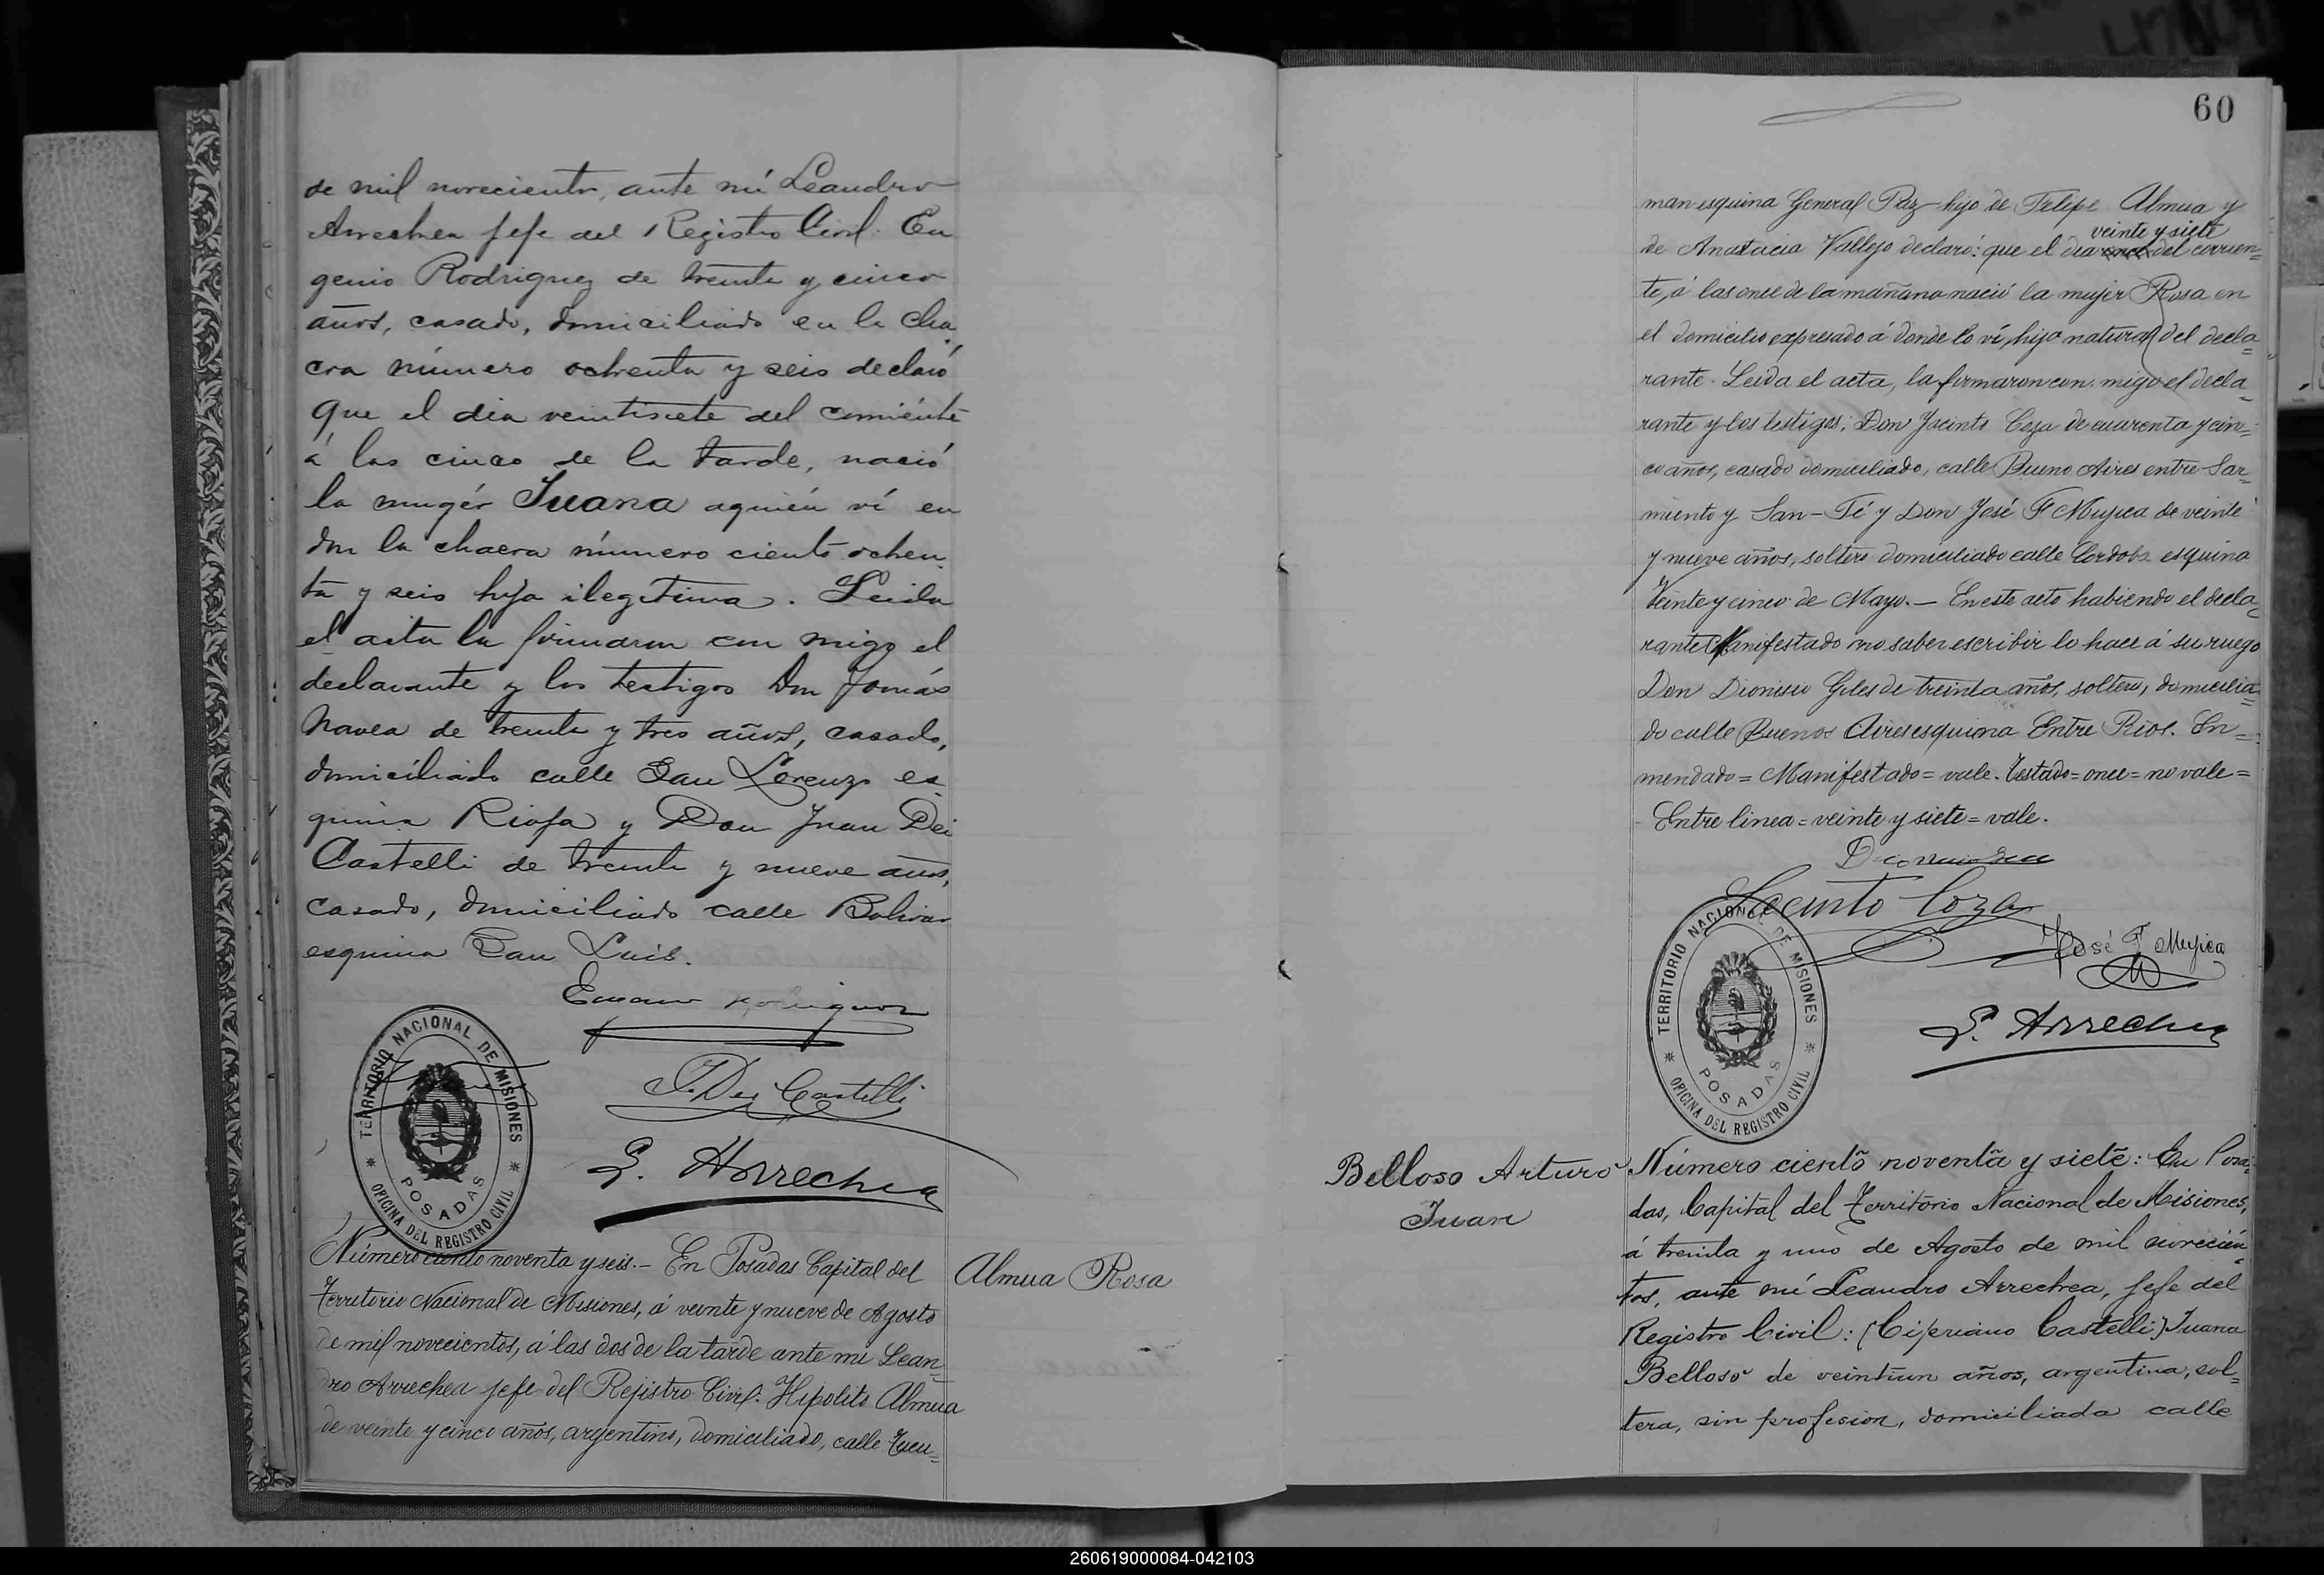 de mil novecientos, ante mí Leandro
Arrechea jefe del Registro Civil: Eu
genio Rodriguez de treinta y cinco
años, casado, domiciliado en la cha
cra número ochenta y seis declaró
que el dia veintisiete del corriénte
á las cinco de la tarde, nació
la mugér Juana aquién ví en
la chacra número ciento ochen
ta y seis hija ilegitima. Leida
el acta la firmaron con migo el
declarante y los testigos Don Tomás
Navea de treinta y tres años, casado,
domiciliado calle San Lorenzo es
quina Rioja y Don Juan Dei
Castelli de treinta y nueve años,
casado, domiciliado calle Bolivar
esquina San Luis.
Eugenio Rodriguez
J. Dei Castelli
L. Arrechea
TERRITORIO NACIONAL DE MISIONES
POSADAS
OFICINA DEL REGISTRO CIVIL
Número ciento noventa y seis.- En Posadas Capital del
Territorio Nacional de Misiones, á veinte y nueve de Agosto
de mil novecientos, á las dos de la tarde ante mi Lean=
dro Arrechea jefe del Rejistro Civil: Hipolito Almua
de veinte y cinco años, argentino, domiciliado, calle Tucu=
Almua Rosa
60
man esquina General Paz hijo de Felipe Almua y
veinte y siete
de Anastacia Vallejo declaró: que el dia once del corrien=
te, á las once de la mañana nació la mujer Rosa en
el domicilio expresado á donde lo ví, hija natural del decla=
rante. Leida el acta, la firmaron con migo el decla=
rante y los testigos: Don Jacinto Coza de cuarenta y cin=
co años, casado domiciliado, calle Bueno Aires entre Sar=
miento y San-Fé y Don José F Mujica de veinte
y nueve años, soltero domiciliado calle Cordoba esquina
Veinte y cinco de Mayo.- En este acto habiendo el decla=
rante Manifestado no saber escribir lo hace á su ruego
Don Dionisio Giles de treinta años, soltero, domicilia=
do calle Buenos Aires esquina Entre Rios. En=
mendado=Manifestado=vale. Testado=once=no vale=
Entre linea=veinte y siete=vale.
Jacinto Coza
José F Mujica
L. Arrechea
TERRITORIO NACIONAL DE MISIONES
POSADAS
OFICINA DEL REGISTRO CIVIL
Belloso Arturo
Juan
Número ciento noventa y siete: En Posa=
das, Capital del Territorio Nacional de Misiones,
á treinta y uno de Agosto de mil novecien=
tos, ante mí Leandro Arrechea, jefe del
Registro Civil: (Cipriano Castelli) Juana
Belloso de veintiun años, argentina, sol=
tera, sin profesion, domiciliada calle
260619000084-042103